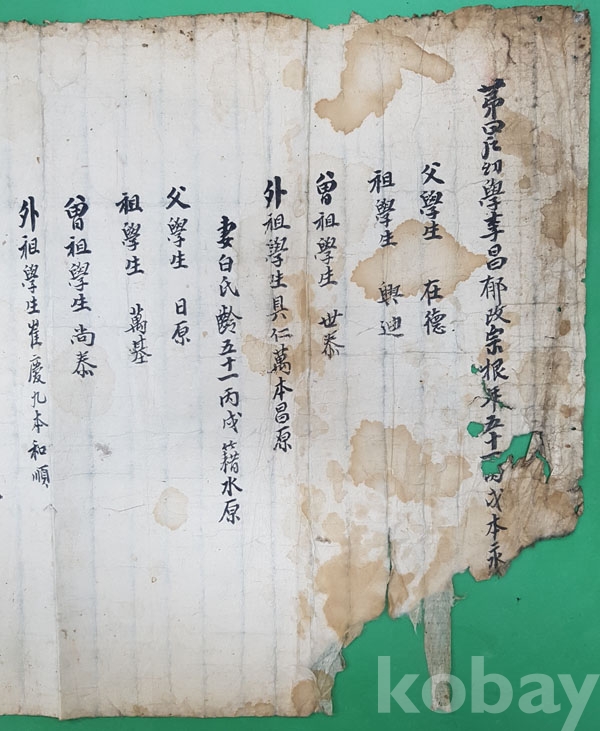 第四戶幼學李昌郁改宗根年五十一丙戌本永
父學生 在德
祖學生 興迪
曾祖學生 世泰
外祖學生具仁萬本昌原
妻白氏齡五十一丙戌籍水原
父學生 日原
祖學生 萬基
曾祖學生 尚泰
外祖學生崔慶九本和順
kobay